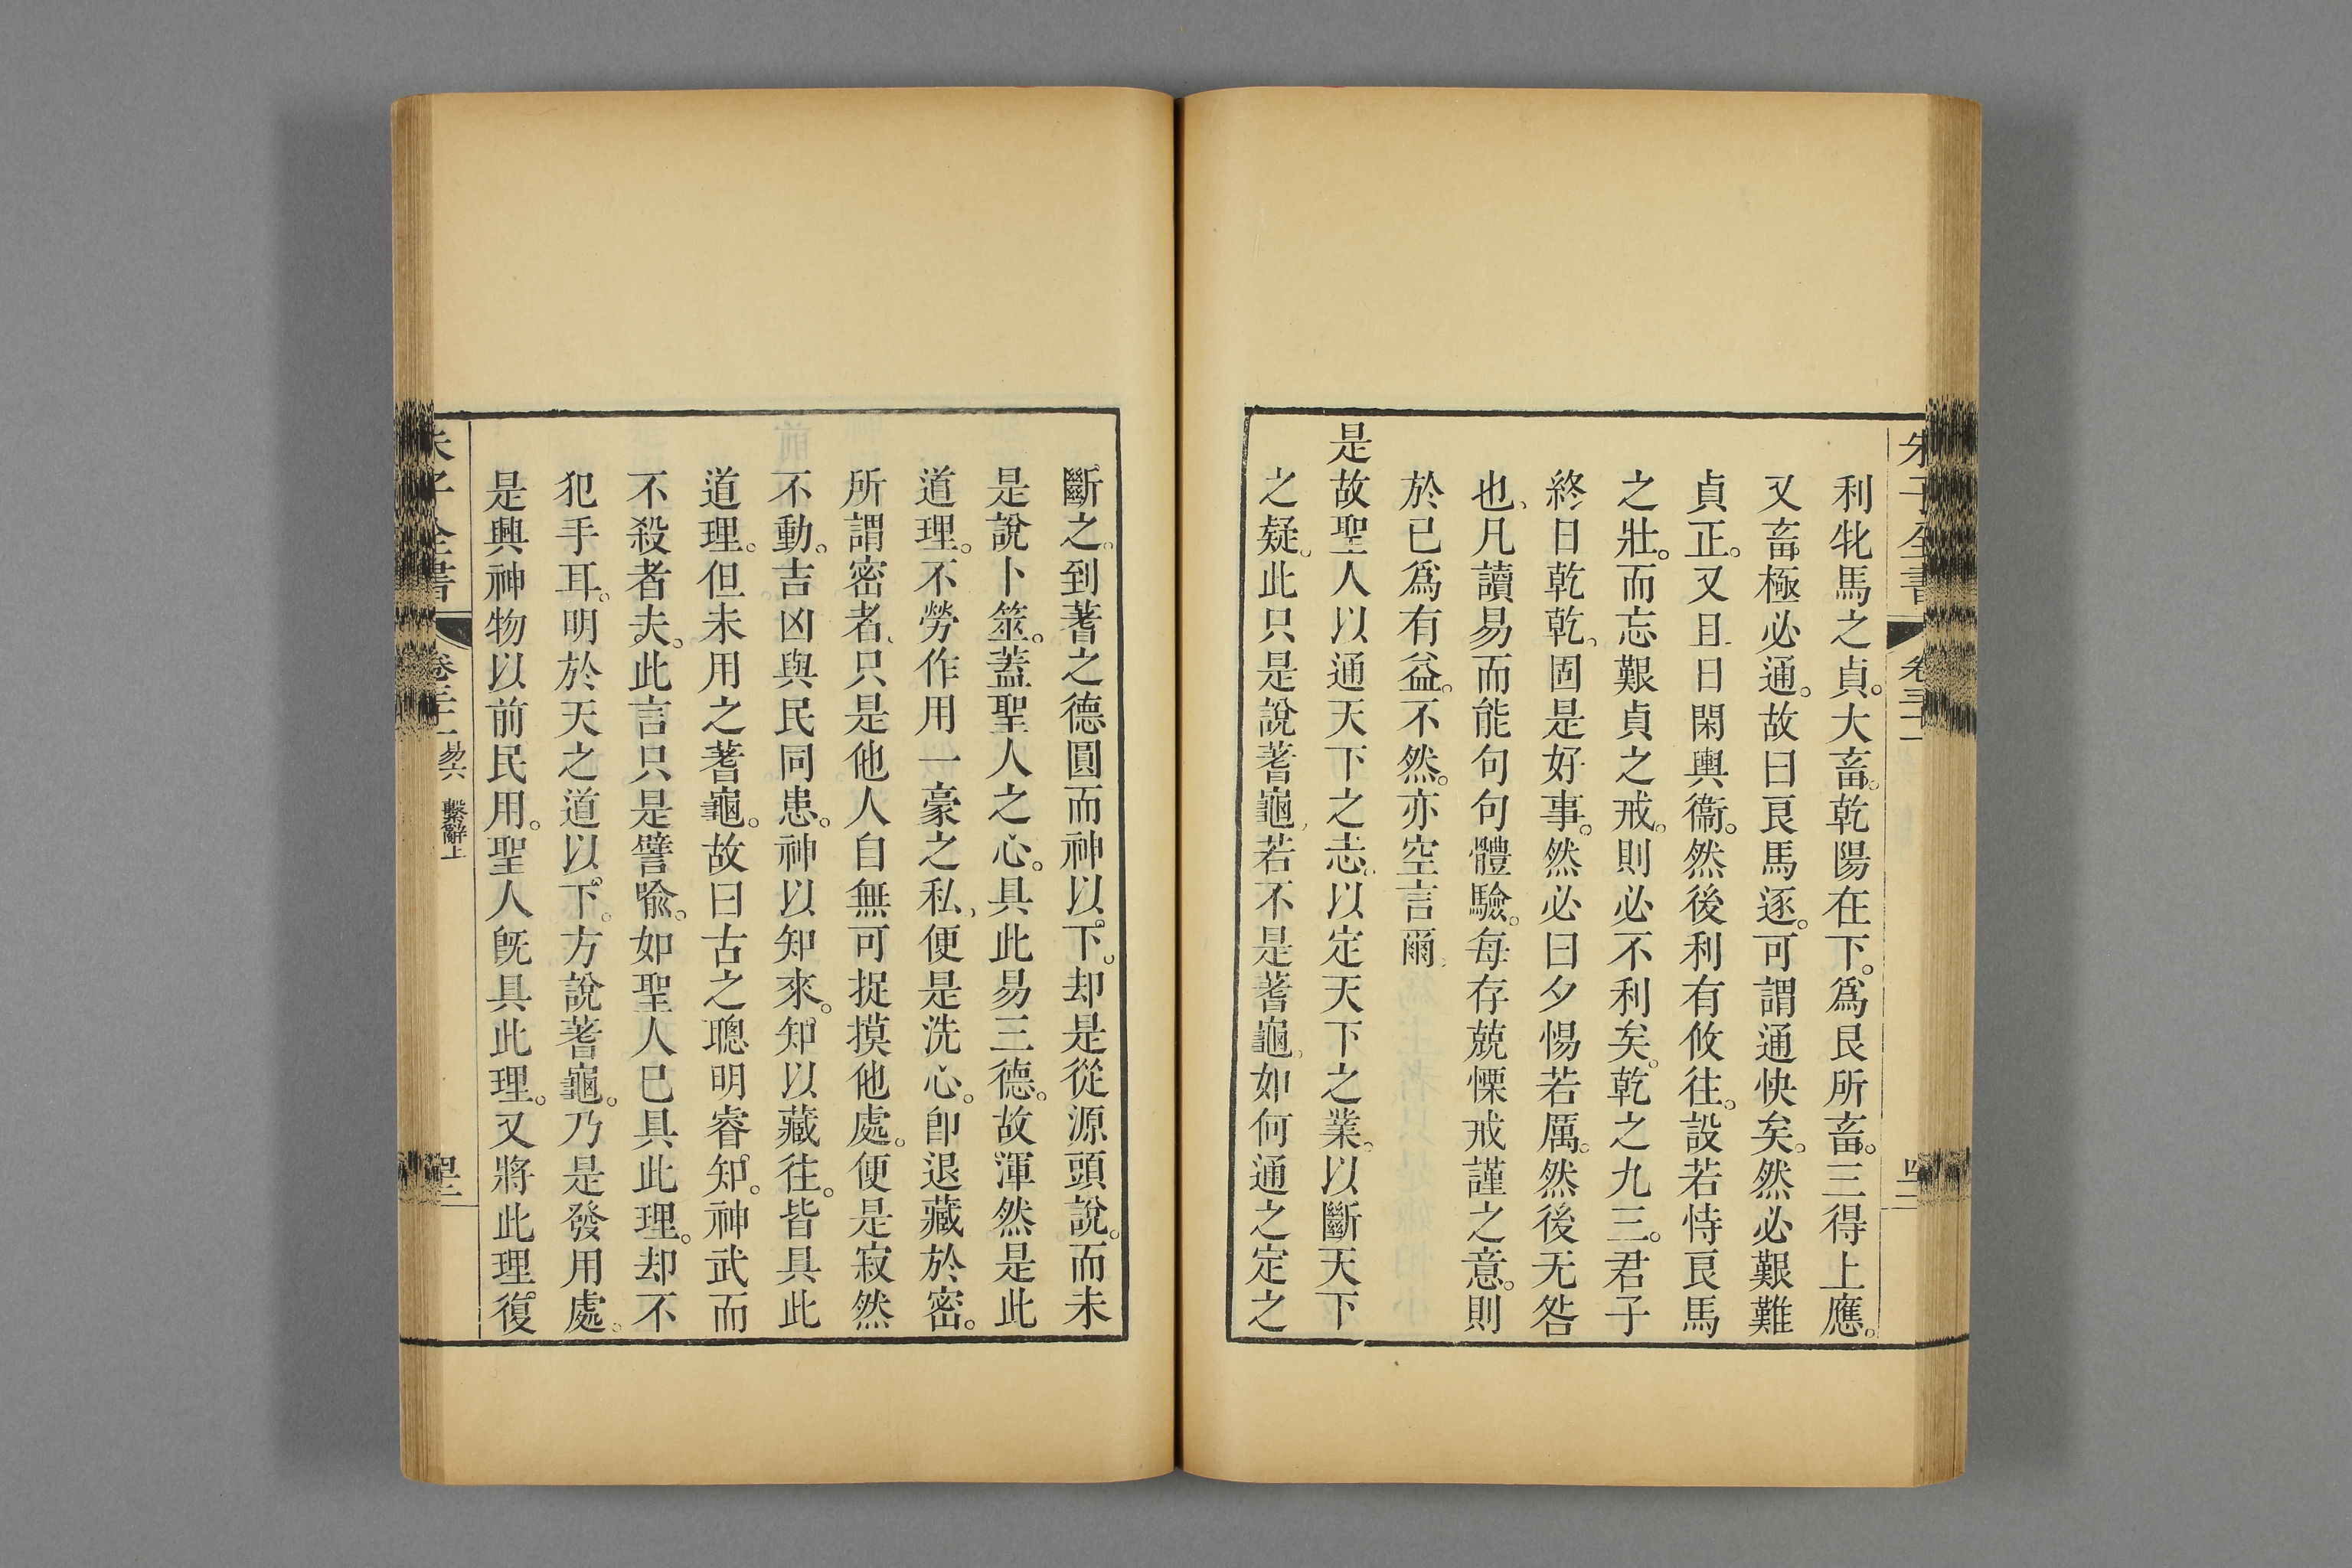 朱子全書 卷三十一
利牝馬之貞。大畜。乾陽在下。爲艮所畜。三得上應。
又畜極必通。故曰良馬逐。可謂通快矣。然必艱難
貞正。又且日閑輿衞。然後利有攸往。設若恃良馬
之壯。而忘艱貞之戒。則必不利矣。乾之九三。君子
終日乾乾、固是好事。然必曰夕惕若厲。然後无咎
也、凡讀易而能句句體驗。每存兢慄戒謹之意。則
於已爲有益。不然。亦空言爾、
是故聖人以通天下之志。以定天下之業。以斷天下
之疑。此只是說蓍龜、若不是蓍龜、如何通之定之
斷之。到蓍之德圓而神以下。却是從源頭說。而未
是說卜筮。蓋聖人之心。具此易三德。故渾然是此
道理。不勞作用一豪之私、便是洗心。卽退藏於密。
所謂密者、只是他人自無可捉摸他處。便是寂然
不動。吉凶與民同患。神以知來。知以藏往。皆具此
道理。但未用之蓍龜。故曰古之聰明睿知。神武而
不殺者夫。此言只是譬喩。如聖人已具此理。却不
犯手耳。明於天之道以下。方說蓍龜。乃是發用處。
是興神物以前民用。聖人旣具此理。又將此理復
朱子全書 易六 繫辭上